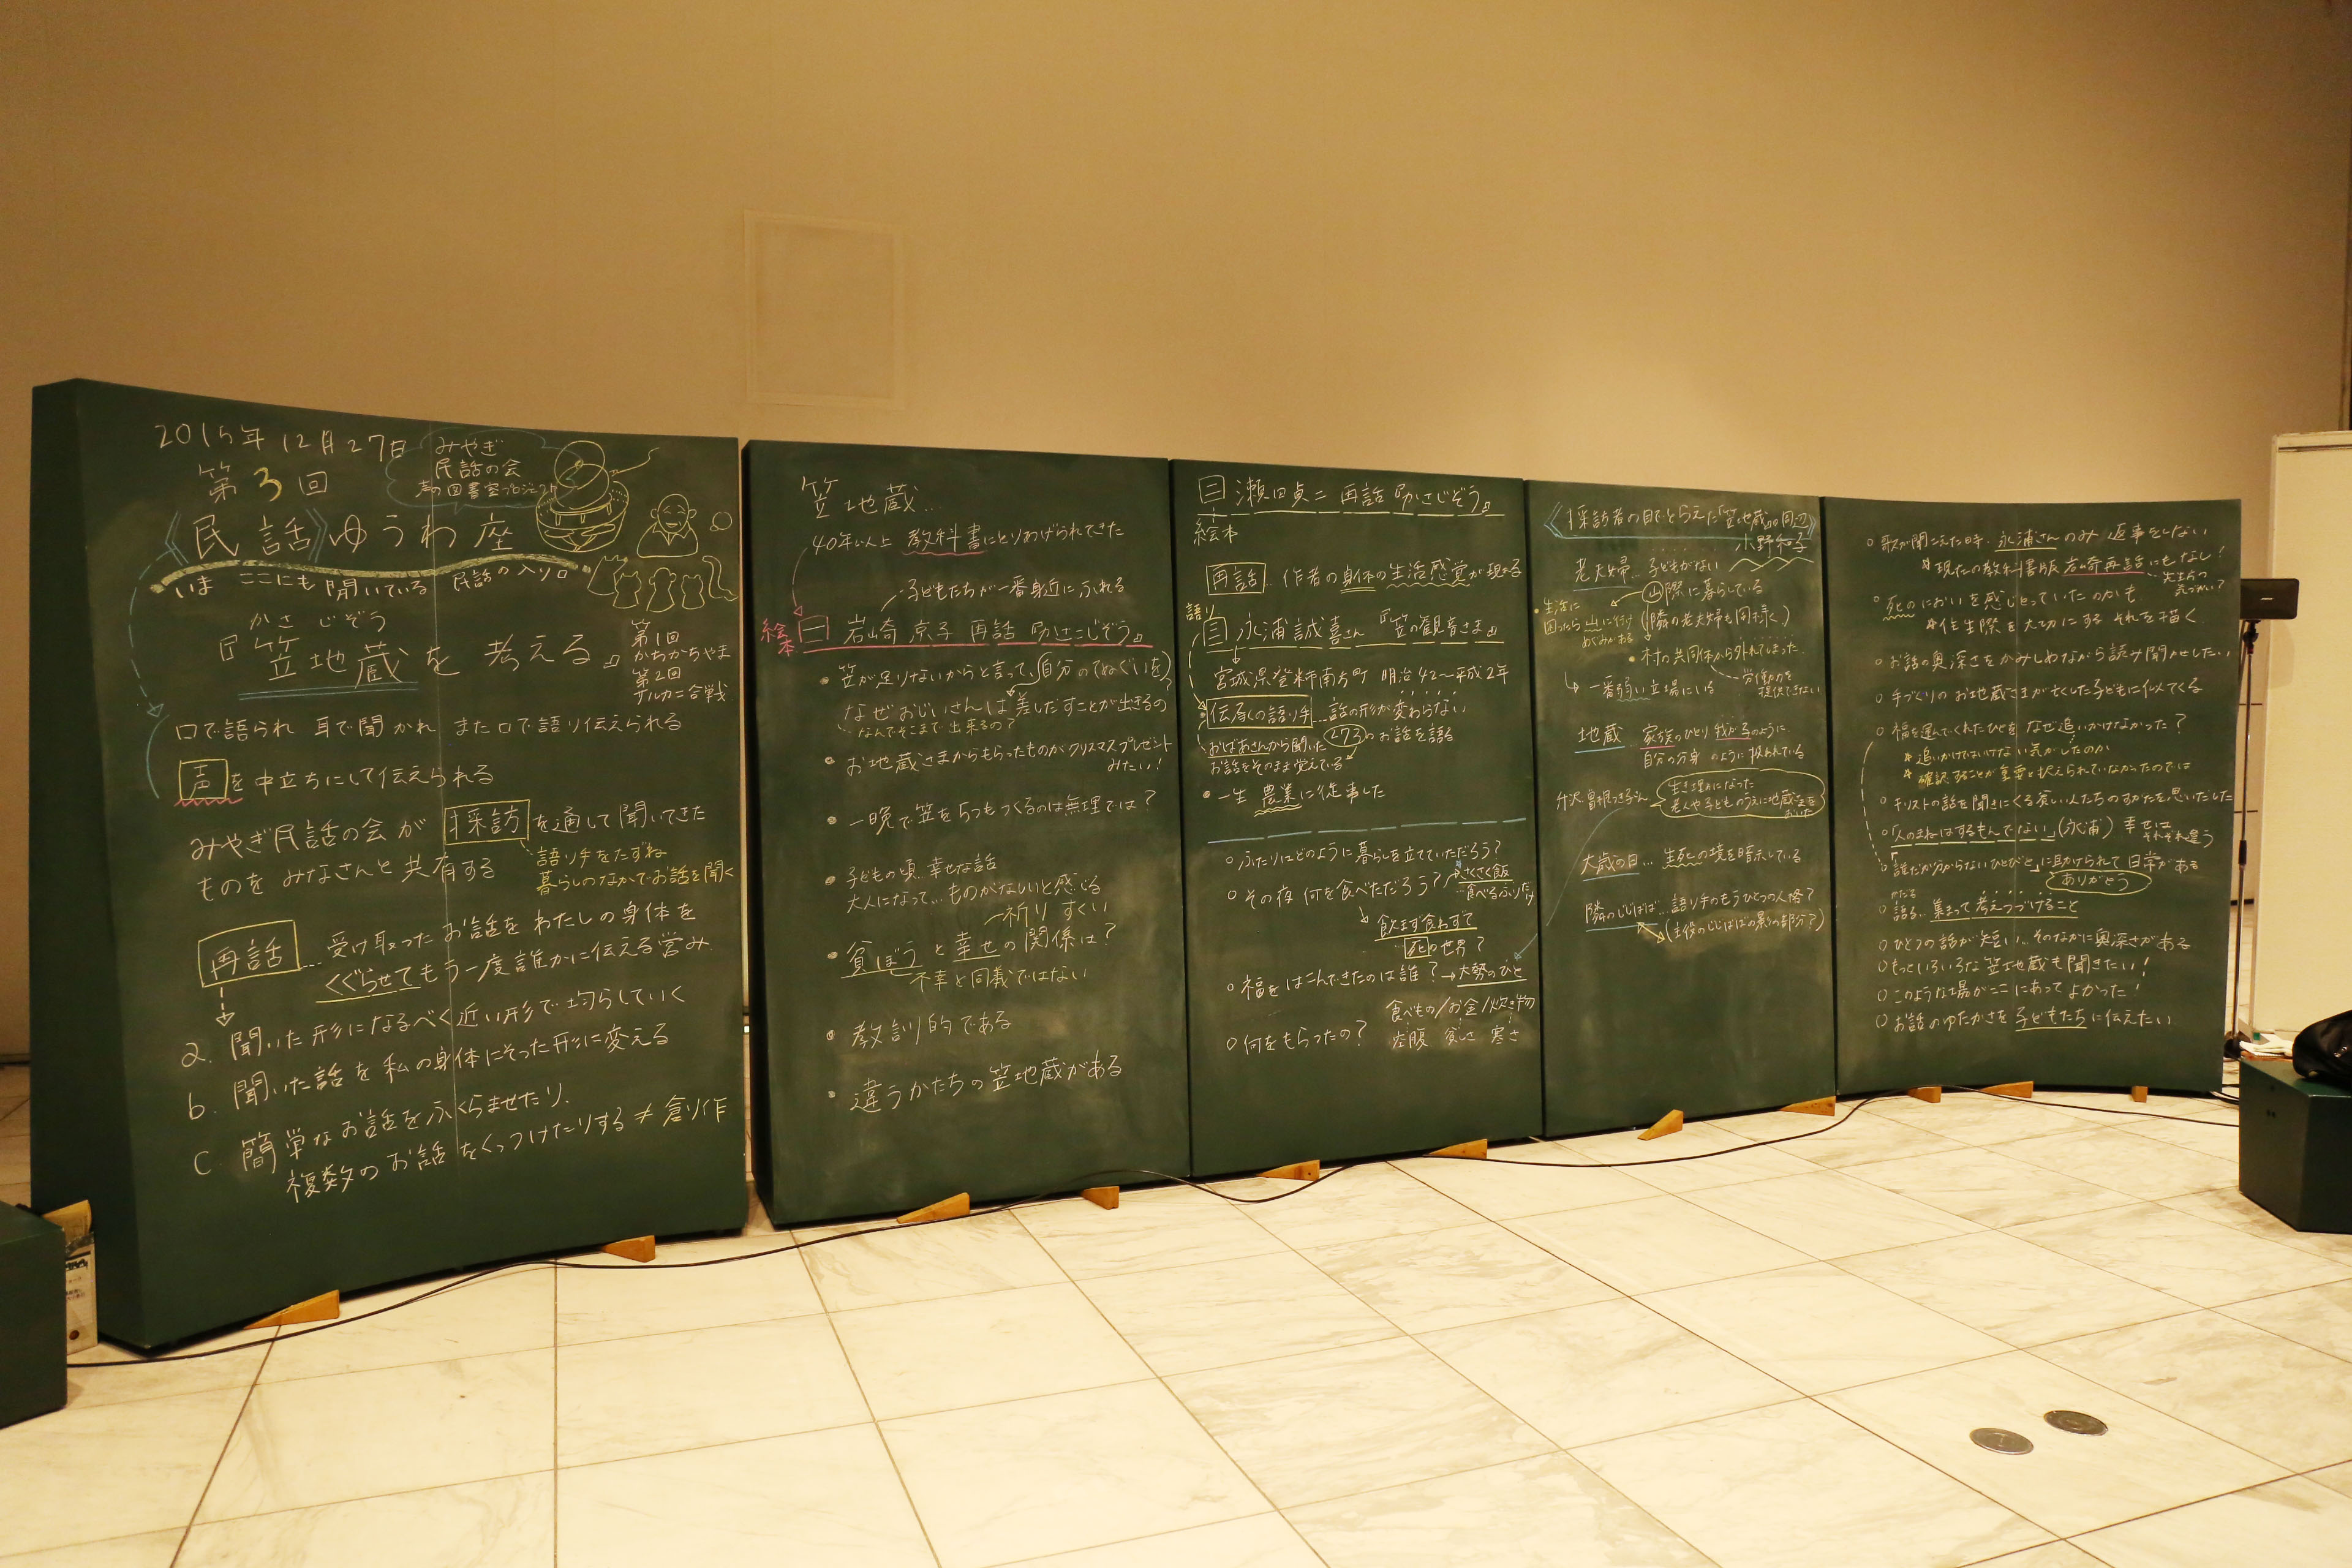 2015年12月27日
みやぎ
民話の会
声の図書室プロジェクト
第3回
《民話》ゆうわ座
いま ここにも 開いている 民話の入り口
かさ じぞう
『笠地蔵を考える』
第1回
かちかちやま
第2回
サルカニ合戦
口で語られ 耳で聞かれ また口で語り伝えられる
声を中立ちにして伝えられる
みやぎ民話の会が 採訪を通して聞いてきた
ものを みなさんと共有する
語り手をたずね
暮らしのなかでお話を聞く
再話…受け取ったお話を わたしの身体を
くぐらせてもう一度誰かに伝える営み
a. 聞いた形になるべく近い形で均らしていく
b. 聞いた話を私の身体にそった形に変える
c. 簡単なお話をふくらませたり、
複数のお話をくっつけたりする ≠ 創作
笠地蔵…
40年以上 教科書にとりあげられてきた
子どもたちが一番身近にふれる
絵本
一 岩崎京子 再話『かさこじぞう』
・笠が足りないからと言って、自分のてぬぐいを
なぜおじいさんは差しだすことが出きるの?
なんでそこまで出来るの?
・お地蔵さまからもらったものがクリスマスプレゼント
みたい!
・一晩で笠を5つもつくるのは無理では?
・子どもの頃 幸せな話
大人になって…ものがなしいと感じる
祈り すくい
・貧ぼうと幸せの関係は?
不幸と同義ではない
・教訓的である
・違うかたちの笠地蔵がある
二 瀬田貞二 再話『かさじぞう』
絵本
再話… 作者の身体の生活感覚が現れる
語り
三 永浦誠喜さん『笠の観音さま』
宮城県登米市南方町 明治42〜平成2年
伝承の語り手…話の形が変わらない
おばあさんから聞いた 273のお話を語る
お話をそのまま覚えている
・一生 農業に従事した
○ふたりはどのように暮らしを立てていただろう?
○その夜 何を食べただろう?
食べるふりだけ
飲まず食わずで
死の世界?
○福をはこんできたのは誰?→大勢のひと
食べもの/お金/炊き物
○何をもらったの? 空腹 貧しさ 寒さ
《採訪者の目でとらえた「笠地蔵」の周辺》
小野和子
老夫婦…子どもがない
山際に暮らしている
生活に
困ったら山に行け
めぐみがある
(隣の老夫婦も同様。)
・村の共同体から外れてしまった
労働力を
提供できない
↳ 一番弱い立場にいる
地蔵 家族のひとり 我が子のように
自分の分身のように扱われている
生き埋めになった
老人や子どものうえに地蔵を
おいた
大歳の日…生死の境を暗示している
隣のじじばば…語り手のもうひとつの人格?
(主役のじじばばの影の部分?)
○歌が聞こえた時、永浦さんのみ 返事をしない
*現在の教科書版 岩崎再話にもなし!
○死のにおいを感じとっていたのかも
*往生際を大切にする それを描く
○お話の奥深さをかみしめながら読み聞かせしたい
○手づくりのお地蔵さまが亡くした子どもに似てくる
○福を運んでくれたひとを なぜ追いかけなかった?
*追いかけてはいけない気がしたのか
*確認することが重要と捉えられていなかったのでは
○キリストの話を聞きにくる貧しい人たちのすがたを思いだした
○「人のまねはするもんでない」(永浦) 幸せは
それぞれ違う
○「誰だか分からないひとびと」に助けられて日常がある
ありがとう
かたる
○語る… 集まって考えつづけること
○ひとつの話が短い…そのなかに奥深さがある
○もっといろいろな笠地蔵も聞きたい!
○このような場がここにあってよかった!
○お話のゆたかさを子どもたちに伝えたい